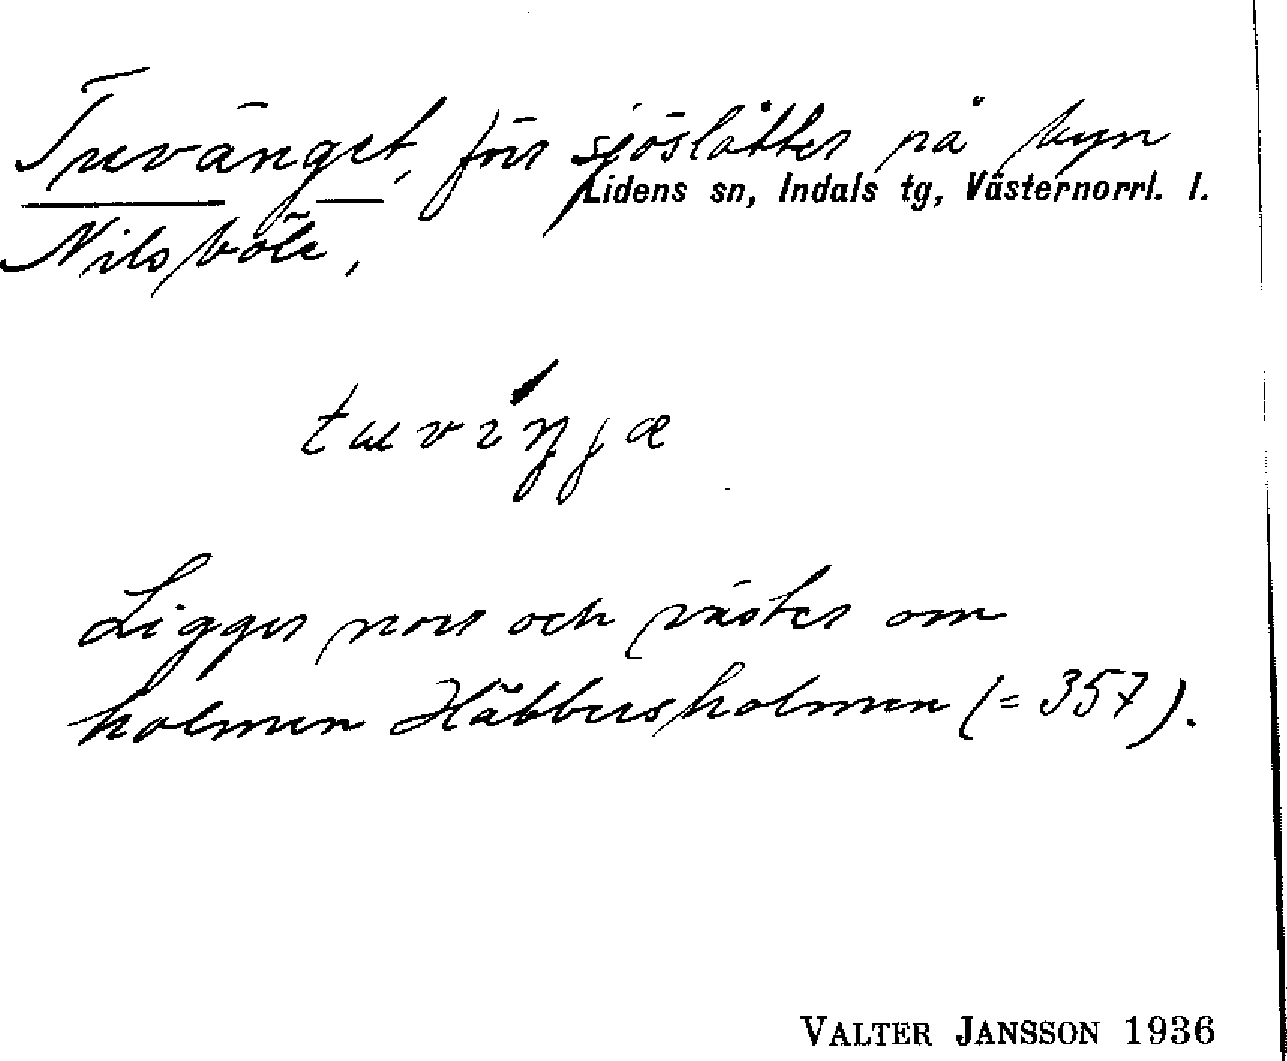 Tuvänget, förr sjöslåtter på byn
Lidens sn, Indals tg, Västernorrl. l.
Nilsböle,
tuvıŋjæ
Ligger norr och väster om
holmen Häbbersholmen (= 357).
VALTER JANSSON 1936